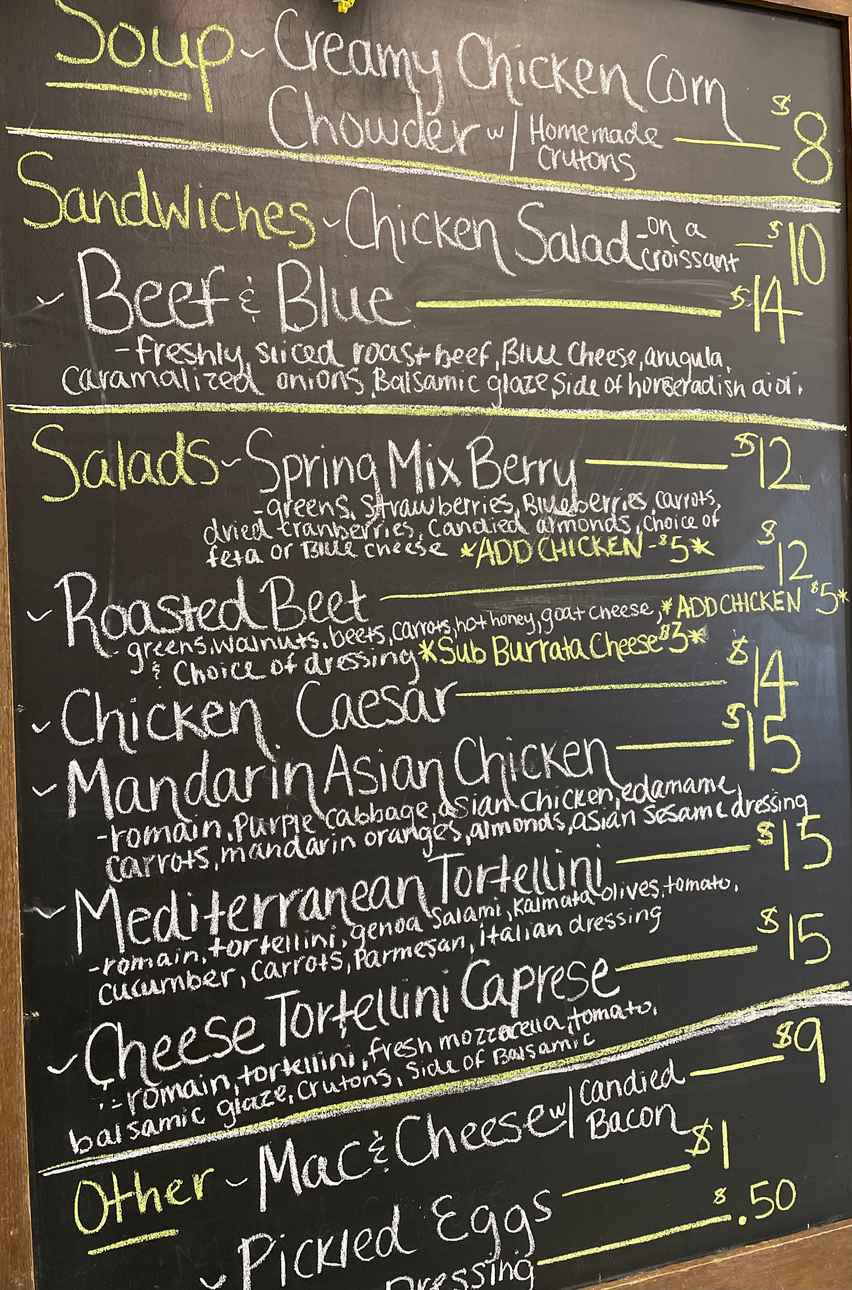 Soup ~ Creamy Chicken Corn
Chowder w/ Homemade Crutons $8
Sandwiches ~ Chicken Salad - on a croissant - $10
~ Beef & Blue $14
- freshly sliced roast beef, Blue Cheese, arugula,
Caramalized onions, Balsamic glaze, Side of horseradish aioi.
Salads ~ Spring Mix Berry $12
- greens, strawberries, Blueberries, carrots,
dried cranberries, candied almonds, choice of
feta or Blue cheese *ADD CHICKEN - $5*
~ Roasted Beet $12
greens, walnuts, beets, carrots, hot honey, goat cheese, *ADD CHICKEN $5*
& Choice of dressing *Sub Burrata Cheese $3*
~ Chicken Caesar $14
~ Mandarin Asian Chicken $15
- romain, Purple cabbage, asian chicken, edamame,
carrots, mandarin oranges, almonds, asian sesame dressing
~ Mediterranean Tortellini $15
- romain, tortellini, genoa salami, kalmata olives, tomato,
cucumber, carrots, Parmesan, italian dressing
~ Cheese Tortellini Caprese $15
- romain, tortellini, fresh mozzarella, tomato,
balsamic glaze, crutons, side of Balsamic
Other ~ Mac & Cheese w/ Candied Bacon $9
~ Pickled Eggs $1
Dressing $.50